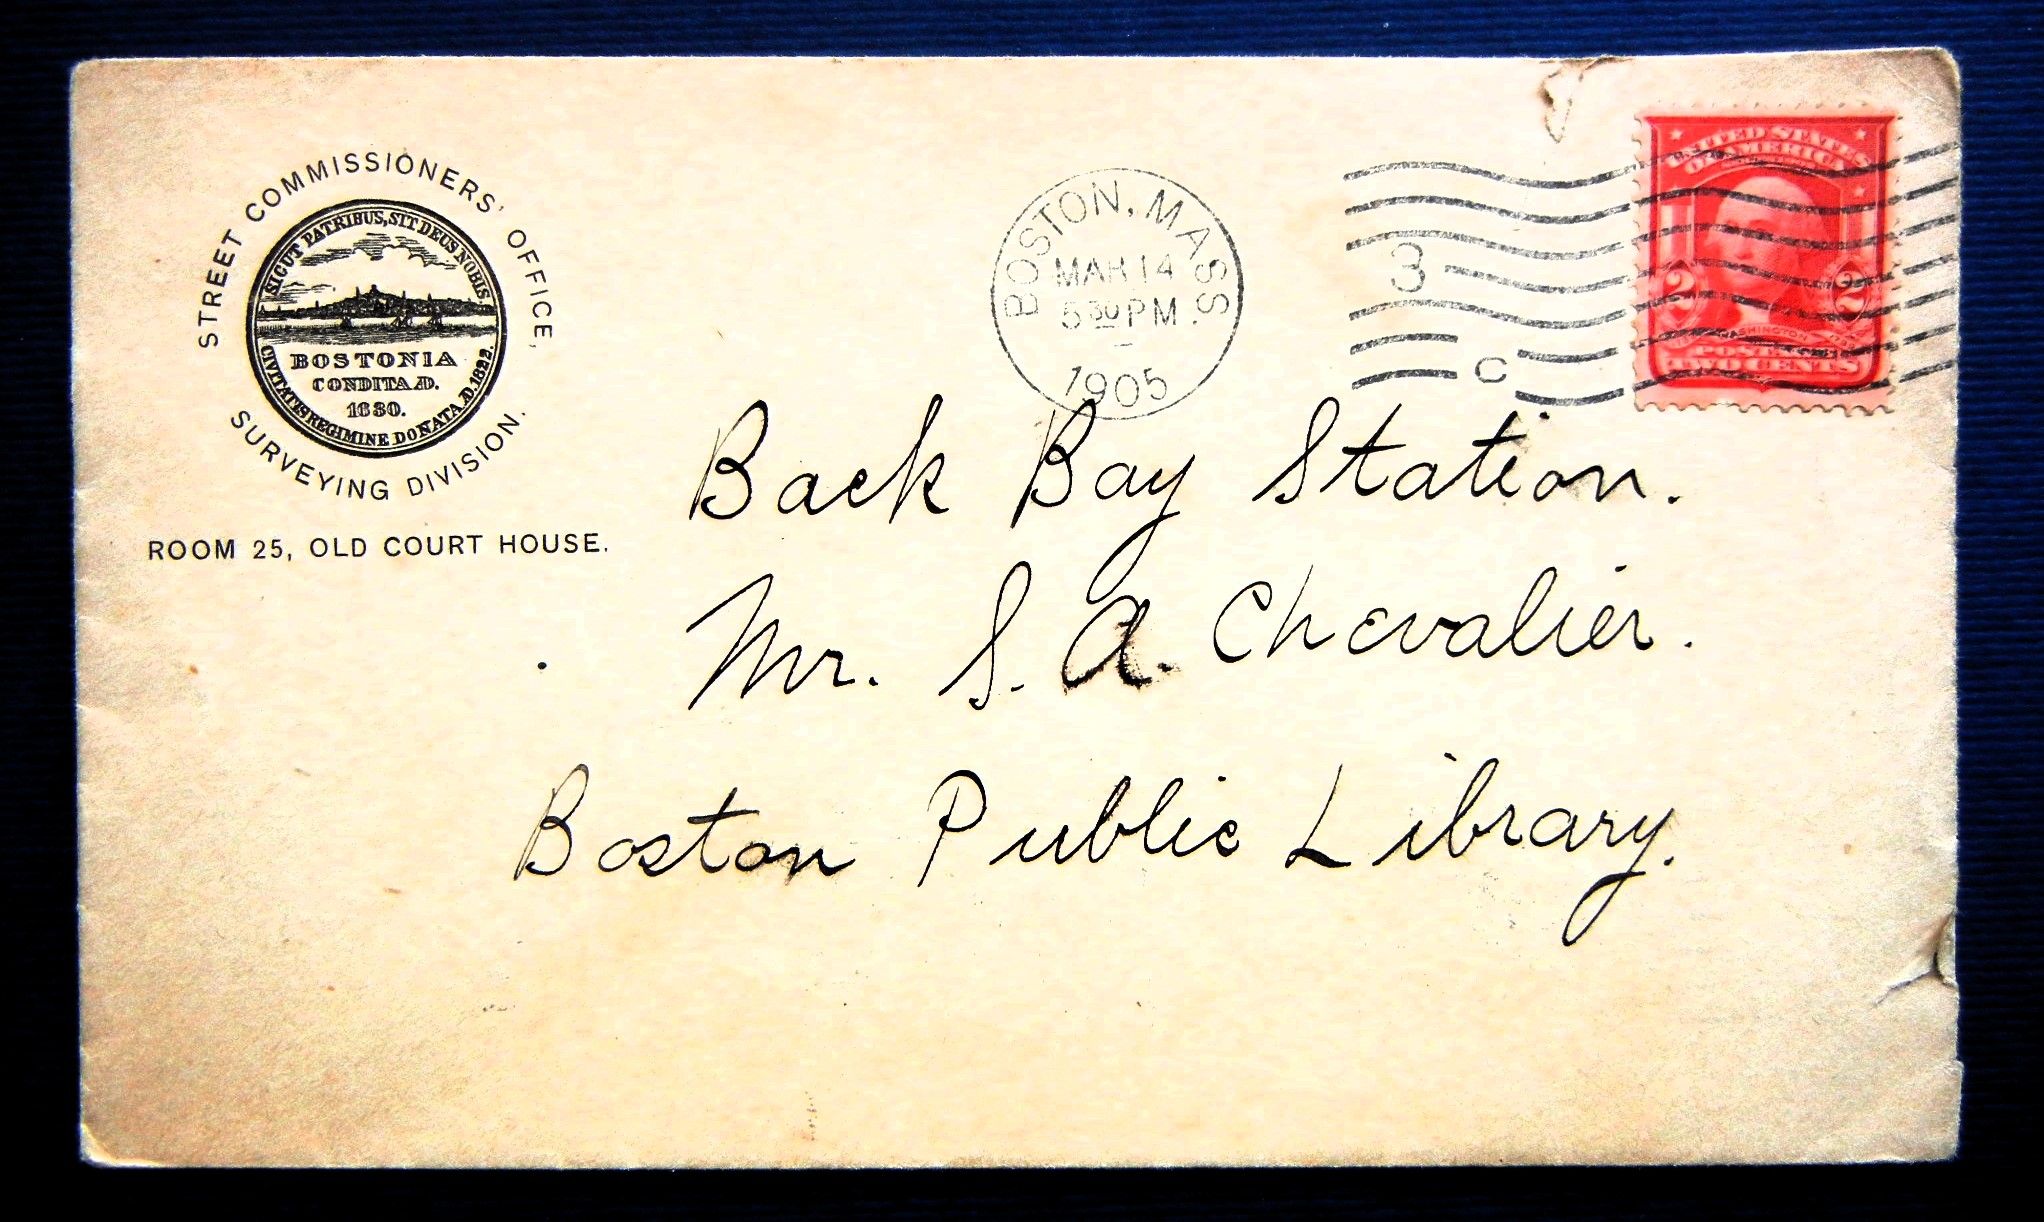 STREET COMMISSIONERS' OFFICE,
SICUT PATRIBUS, SIT DEUS NOBIS.
BOSTONIA
CONDITA AD.
1630.
CIVITATIS REGIMINE DONATA AD. 1822.
SURVEYING DIVISION.
ROOM 25, OLD COURT HOUSE.
BOSTON, MASS.
MAR 14
5 30 PM
1905
3
C
UNITED STATES
OF AMERICA
2 2
WASHINGTON
TWO CENTS
Back Bay Station.
Mr. S. A. Chevalier.
Boston Public Library.